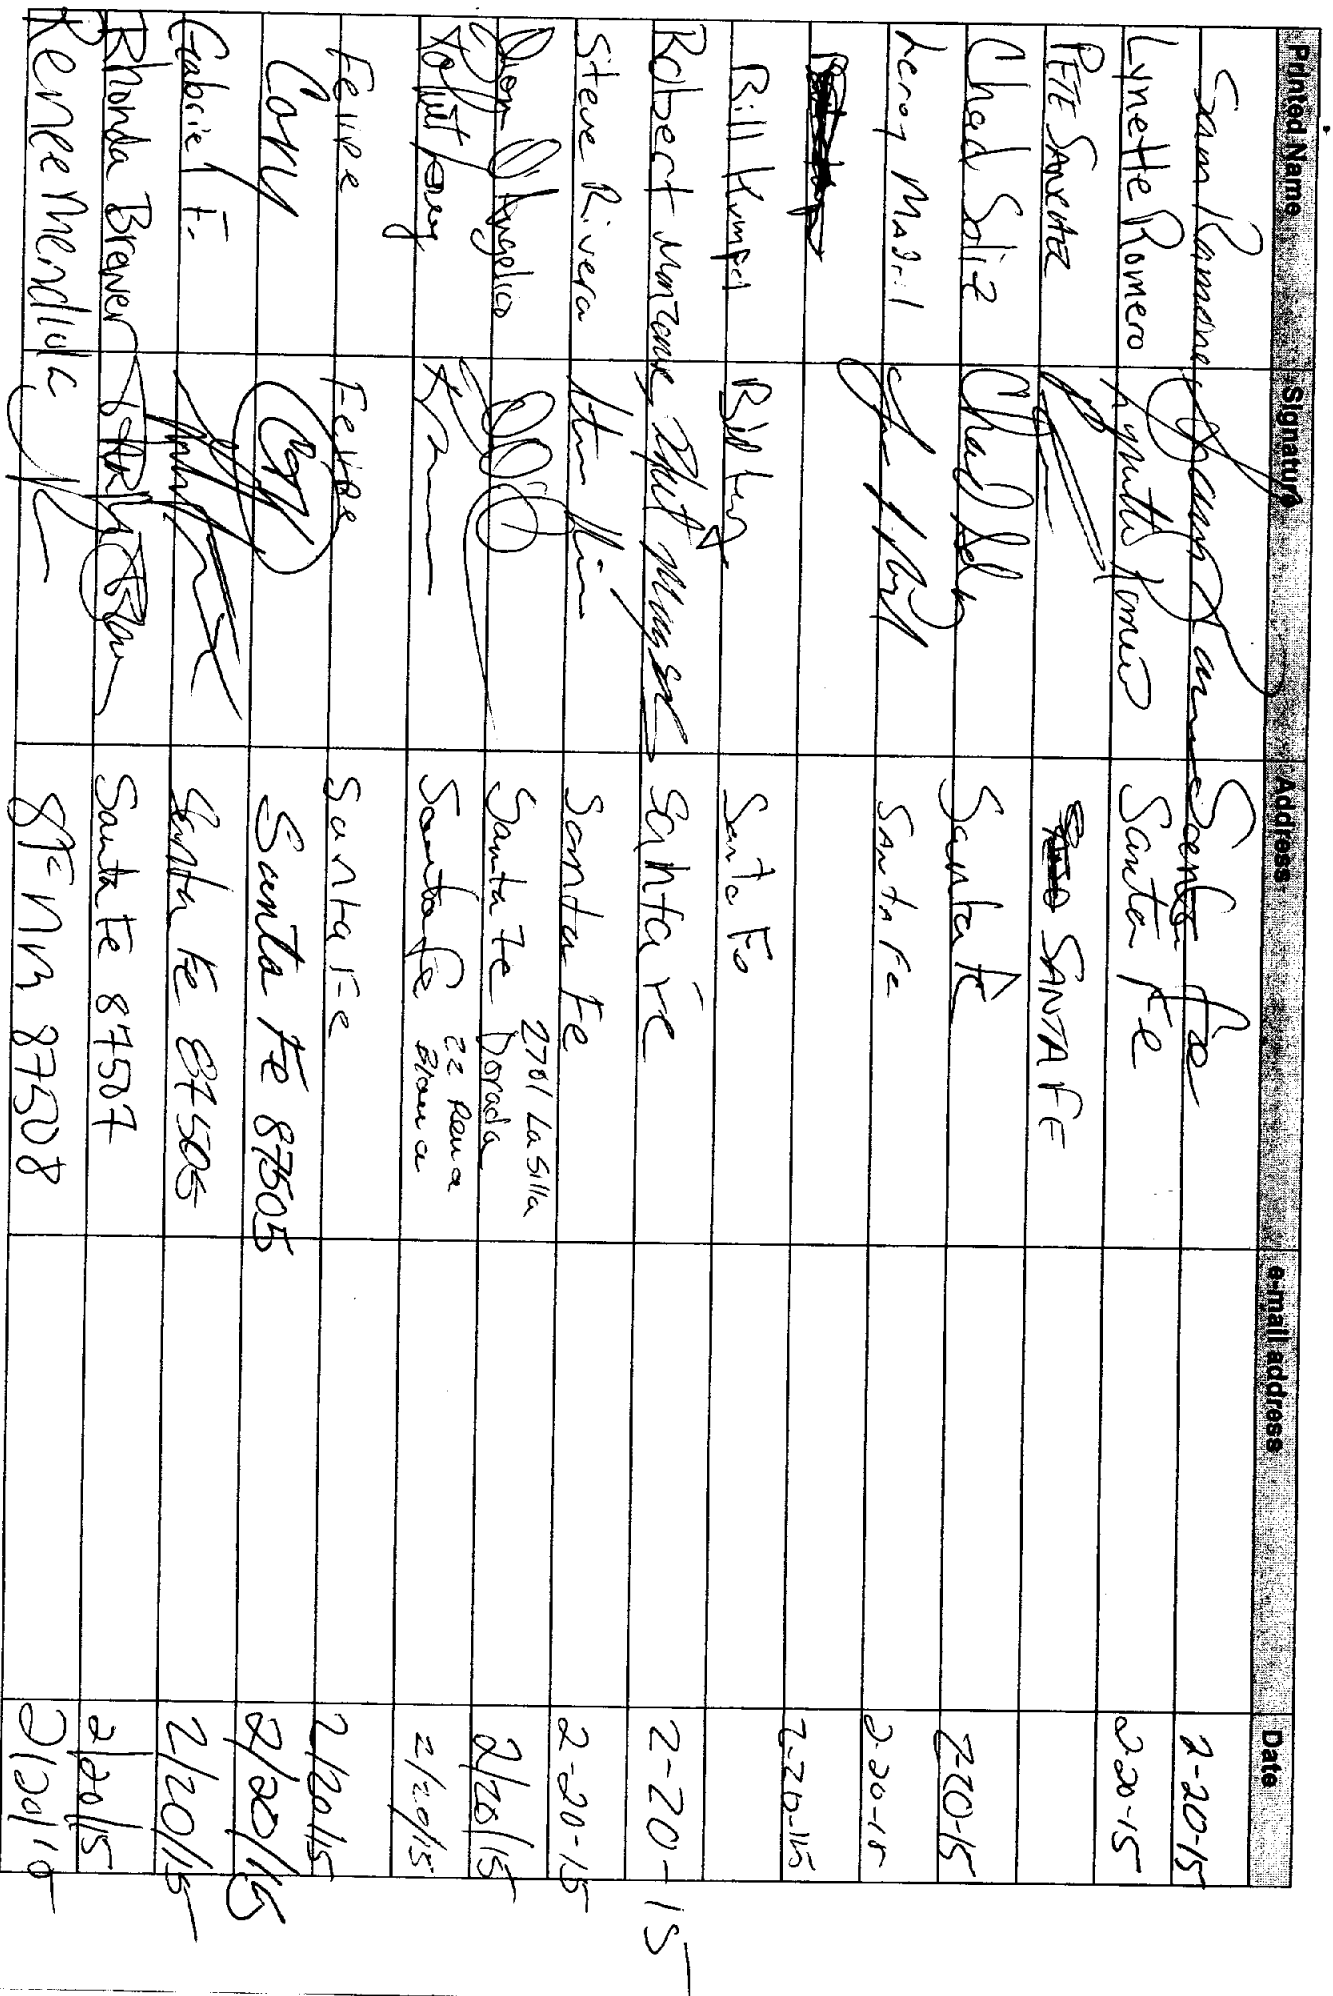 Printed Name Signature Address e-mail address Date
Sam Ramone Santa Fe 2-20-15
Lynette Romero Lynette Romero Santa Fe 2-20-15
PETE SANCHEZ SANTA FE
Chad Soliz Chad Soliz Santa Fe 2-20-15
Leroy Madril Santa Fe 2-20-15
2-20-15
Bill Santa Fe
Robert Santa Fe 2-20-15
Steve Rivera Santa Fe 2-20-15
D'Angelico Santa Fe 2701 La Silla Dorada 2/20/15
Santa Fe 22 Pena Blanca 2/20/15
Felipe Felipe Santa Fe 2/20/15
Cory Cory Santa Fe 87505 2/20/15
Gabriel F. Santa Fe 87505 2/20/15
Rhonda Brewer Santa Fe 87507 2/20/15
Renee Mendiola SF NM 87508